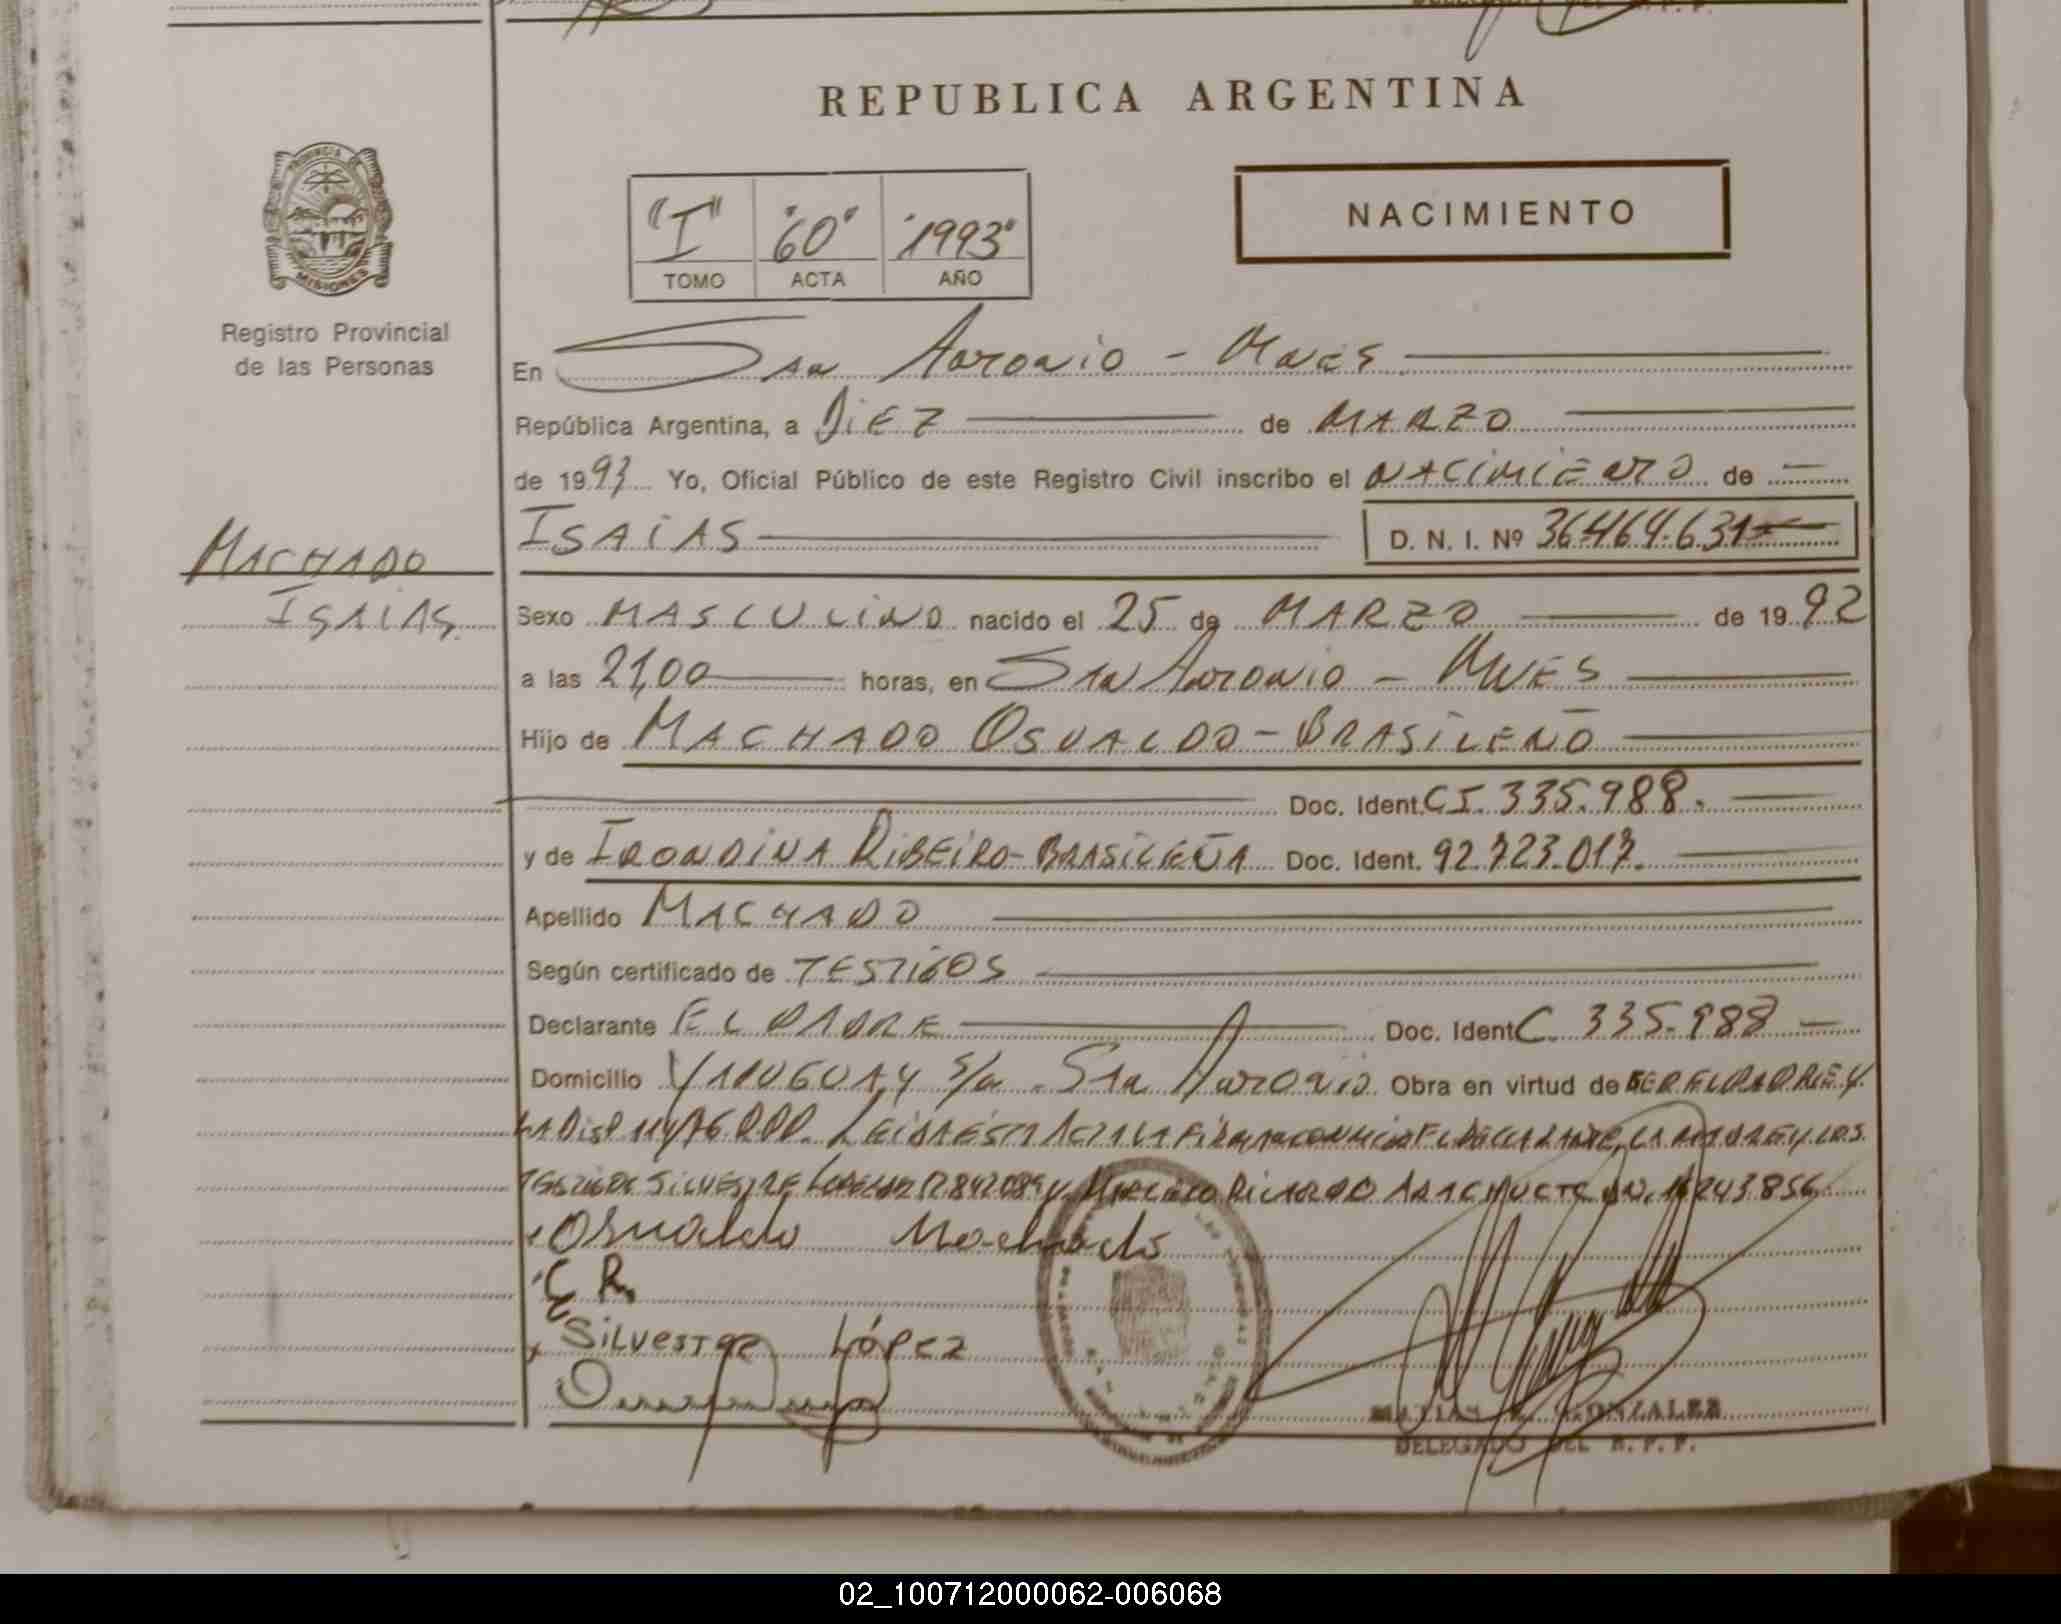 REPUBLICA ARGENTINA
PROVINCIA DE
MISIONES
Registro Provincial
de las Personas
"I" "60" "1993"
TOMO ACTA AÑO
NACIMIENTO
En San Antonio - Mnes
República Argentina, a DIEZ de MARZO
de 1993 Yo, Oficial Público de este Registro Civil inscribo el NACIMIENTO de
ISAIAS D. N. I. Nº 36.464.631
MACHADO
ISAIAS.
Sexo MASCULINO nacido el 25 de MARZO de 1992
a las 21,00 horas, en San Antonio - MNES
Hijo de MACHADO OSVALDO - BRASILEÑO
Doc. Ident. CI. 335.988.
y de IRONDINA RIBEIRO - BRASILEÑA Doc. Ident. 92.723.017.
Apellido MACHADO
Según certificado de TESTIGOS
Declarante EL PADRE Doc. Ident C. 335.988
Domicilio S/n. San Antonio Obra en virtud de SER EL PADRE Y
LA DISP 114/76 LEIDA ESTA ACTA LA FIRMAN CONMIGO EL DECLARANTE, LA MADRE Y LOS
TESTIGOS SILVESTRE LOPEZ Y RICARDO
Osvaldo Machado
R.
SILVESTRE LÓPEZ
GONZALEZ
DELEGADO DEL R. P. P.
02_100712000062-006068